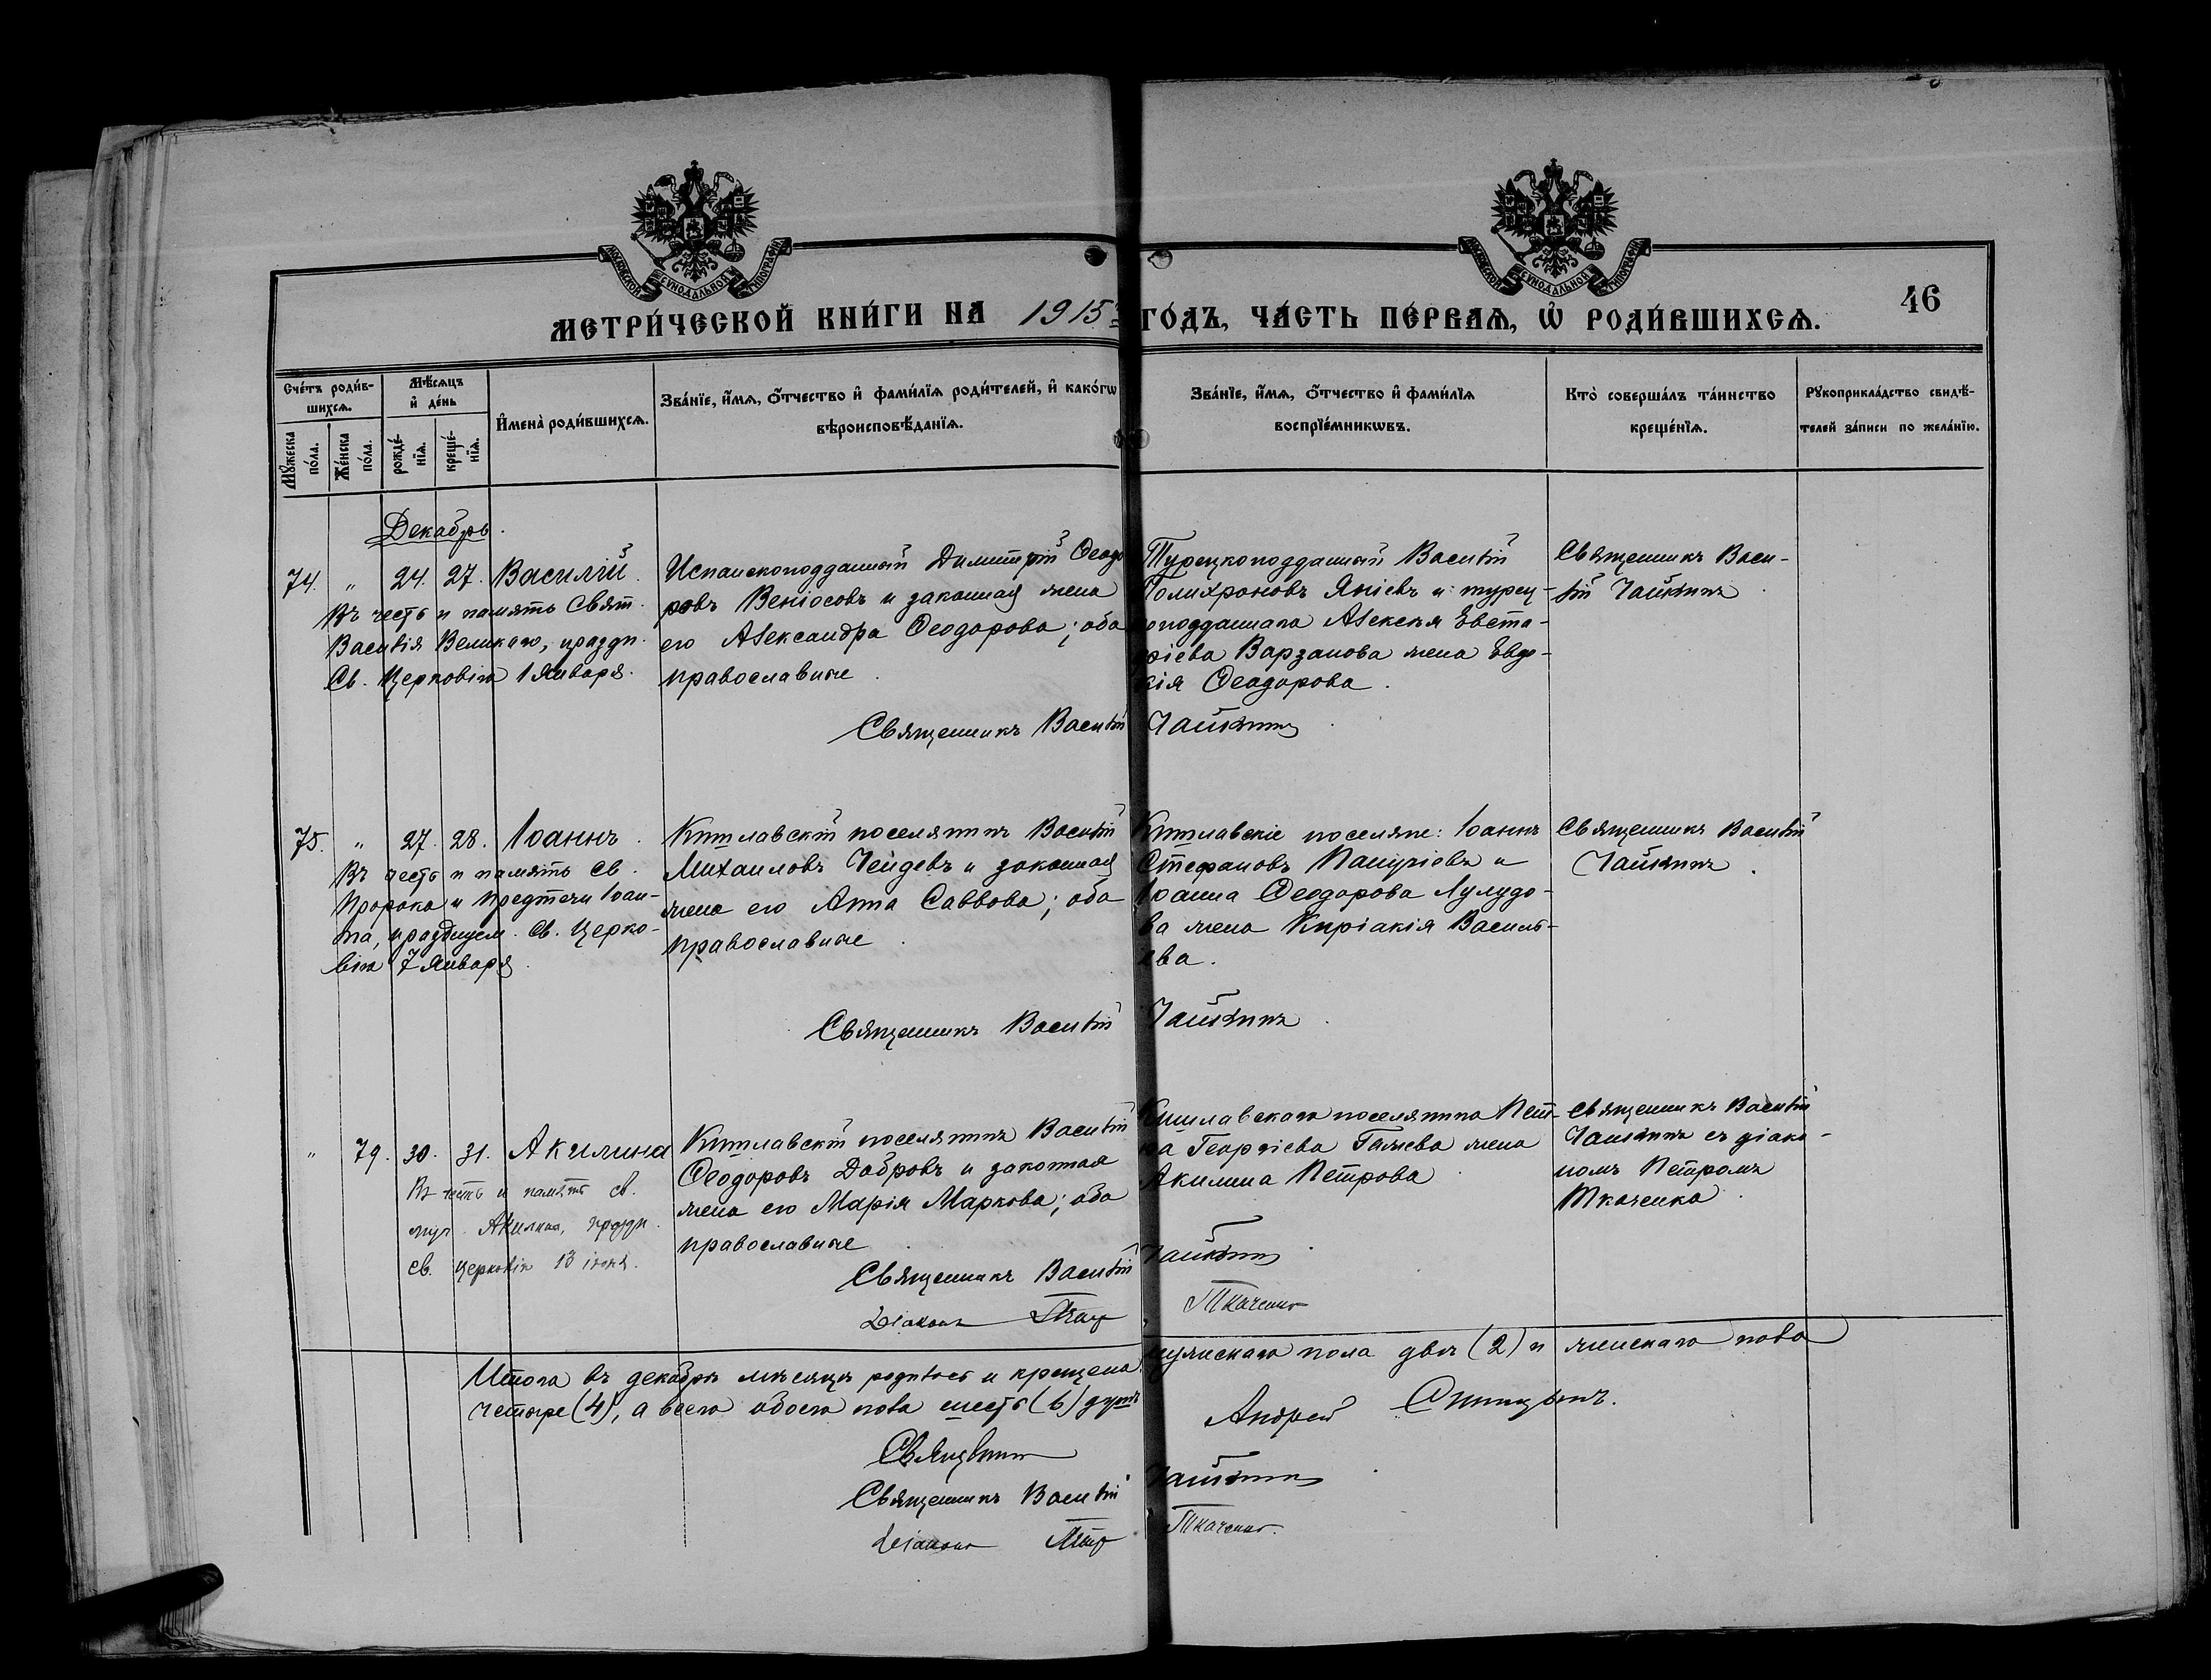 МОСКОВСКОЙ СѴНОДАЛЬНОЙ ТИПОГРАФІИ
МОСКОВСКОЙ СѴНОДАЛЬНОЙ ТИПОГРАФІИ
МЕТРИ́ЧЕСКОЙ КНИ́ГИ НА 1915 ГО́ДЪ, ЧА́СТЬ ПЕ́РВАѦ, Ѡ҆ РОДИ́ВШИХСѦ.
46
Сче́тъ роди́в-
шихсѧ.
Мѣ́сѧцъ
и҆ де́нь
Мꙋ́жеска
по́ла.
Же́нска
по́ла.
рожде́-
нїѧ.
креще́-
нїѧ.
И҆мена̀ роди́вшихсѧ.
Зва́нїе, и҆́мѧ, ѻ҆́тчество и҆ фами́лїѧ роди́телей, и҆ како́гѡ
вѣроисповѣ́данїѧ.
Зва́нїе, и҆́мѧ, ѻ҆́тчество и҆ фами́лїѧ
воспрїе́мникѡвъ.
Кто̀ соверша́лъ та́инство
креще́нїѧ.
Рꙋкоприкла́дство свидѣ́-
телей за́писи по жела́нїю.
Декабрь.
74. " 24. 27. Василій.
Въ честь и память Свят.
Василія Великаго, праздн.
Св. Церковію 1 Января.
Испанскоподданный Димитрій Ѳеодо
ровъ Веніосовъ и законная жена
его Александра Ѳеодорова; оба
православные.
Турецкоподданный Василій
Полихроновъ Яніевъ и турец-
коподданнаго Алексія Евста-
фіева Варзанова жена Евдо-
кія Ѳеодорова.
Священникъ Васи-
лій Чайкинъ.
Священникъ Василій Чайкинъ.
75. " 27. 28. Іоаннъ.
Въ честь и память св.
Пророка и Предтечи Іоан-
на, празднуем. св. Церко-
вію 7 Января.
Кишлавскій поселянинъ Василій
Михаиловъ Чейдевъ и законная
жена его Анна Саввова; оба
православные.
Кишлавскіе поселяне: Іоаннъ
Стефановъ Панчіевъ и
Іоанна Ѳеодорова Лулудо-
ва жена Киріакія Василь-
ева.
Священникъ Василій
Чайкинъ.
Священникъ Василій Чайкинъ.
" 79. 30. 31. Акилина
Въ честь и память св.
муч. Акилины, праздн.
св. Церковію 13 іюня.
Кишлавскій поселянинъ Василій
Ѳеодоровъ Добровъ и законная
жена его Марія Маркова; оба
православные.
Кишлавскаго поселянина Пет-
ра Георгіева жена
Акилина Петрова.
Священникъ Василій
Чайкинъ съ діако-
номъ Петромъ
Ткаченко.
Священникъ Василій Чайкинъ
Діаконъ Петр Ткаченко
Итого въ декабрѣ мѣсяцѣ родилось и крещено мужескаго пола два (2) и женскаго пола
четыре (4), а всего обоего пола шесть (6) душъ
Андрей Синицынъ.
Священникъ Василій Чайкинъ.
Діаконъ Петр Ткаченко.